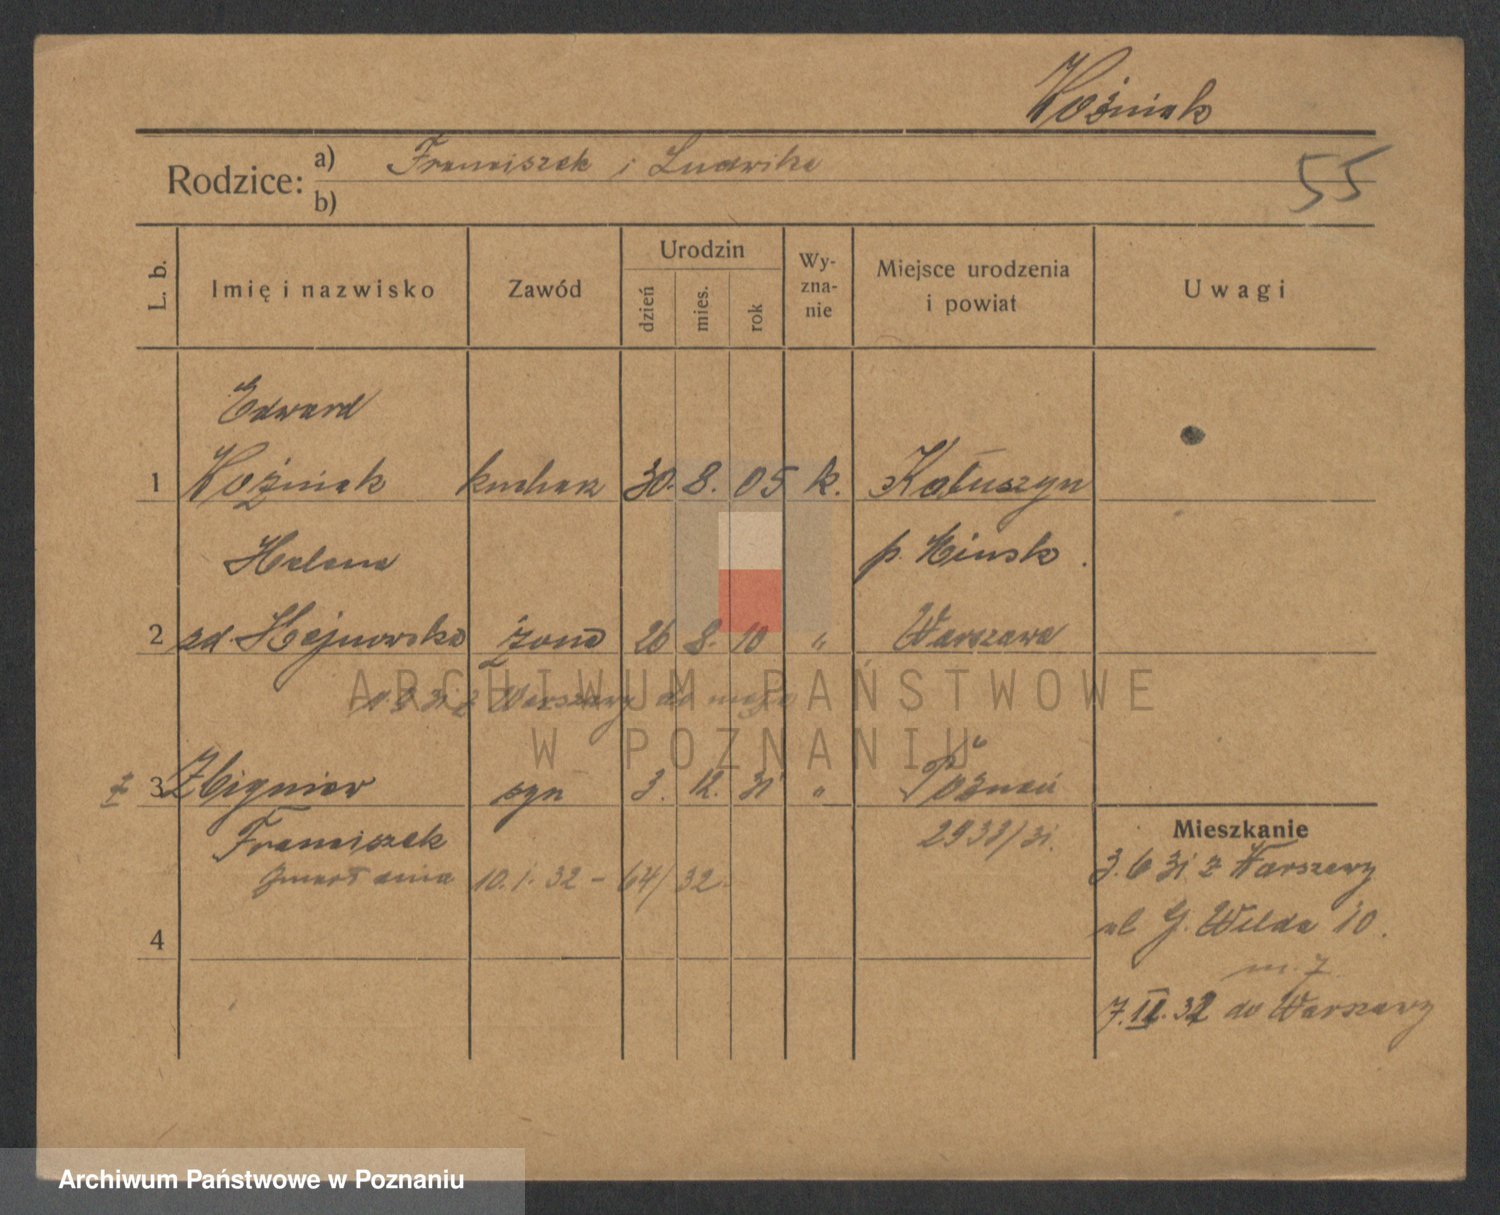 Woźniak
Rodzice: a) Franciszek i Ludwika
b)
55
L. b.
Imię i nazwisko
Zawód
Urodzin
dzień
mies.
rok
Wy-
zna-
nie
Miejsce urodzenia
i powiat
Uwagi
Edward
1 Woźniak kucharz 30. 8. 05 k. Kałuszyn
Helena p. Mińsk.
2 zd. Hajnowska żona 26 8. 10 " Warszawa
z Warszawy do męża
ARCHIWUM PAŃSTWOWE
W POZNANIU
3 Zbigniew syn 3. 12. 31 " Poznań
Franciszek 2938/31.
zmarł dnia 10.1.32 - 64/32.
4
Mieszkanie
3.6 31 z Warszawy
ul G. Wilda 10.
m. 7
7.II.32 do Warszawy
Archiwum Państwowe w Poznaniu